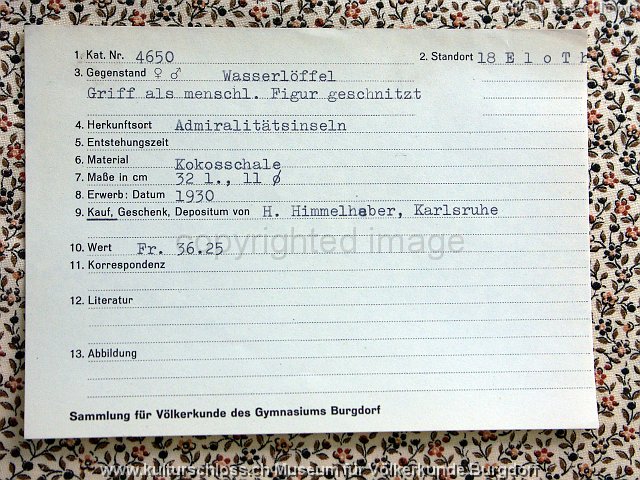 1. Kat. Nr. 4650 2. Standort 18 E l o T h
3. Gegenstand ♀ ♂ Wasserlöffel
Griff als menschl. Figur geschnitzt
4. Herkunftsort Admiralitätsinseln
5. Entstehungszeit
6. Material Kokosschale
7. Maße in cm 32 l., 11 ø
8. Erwerb: Datum 1930
9. Kauf, Geschenk, Depositum von H. Himmelheber, Karlsruhe
copyrighted image
10. Wert Fr. 36.25
11. Korrespondenz
12. Literatur
13. Abbildung
Sammlung für Völkerkunde des Gymnasiums Burgdorf
www.kulturschloss.ch Museum für Völkerkunde Burgdorf